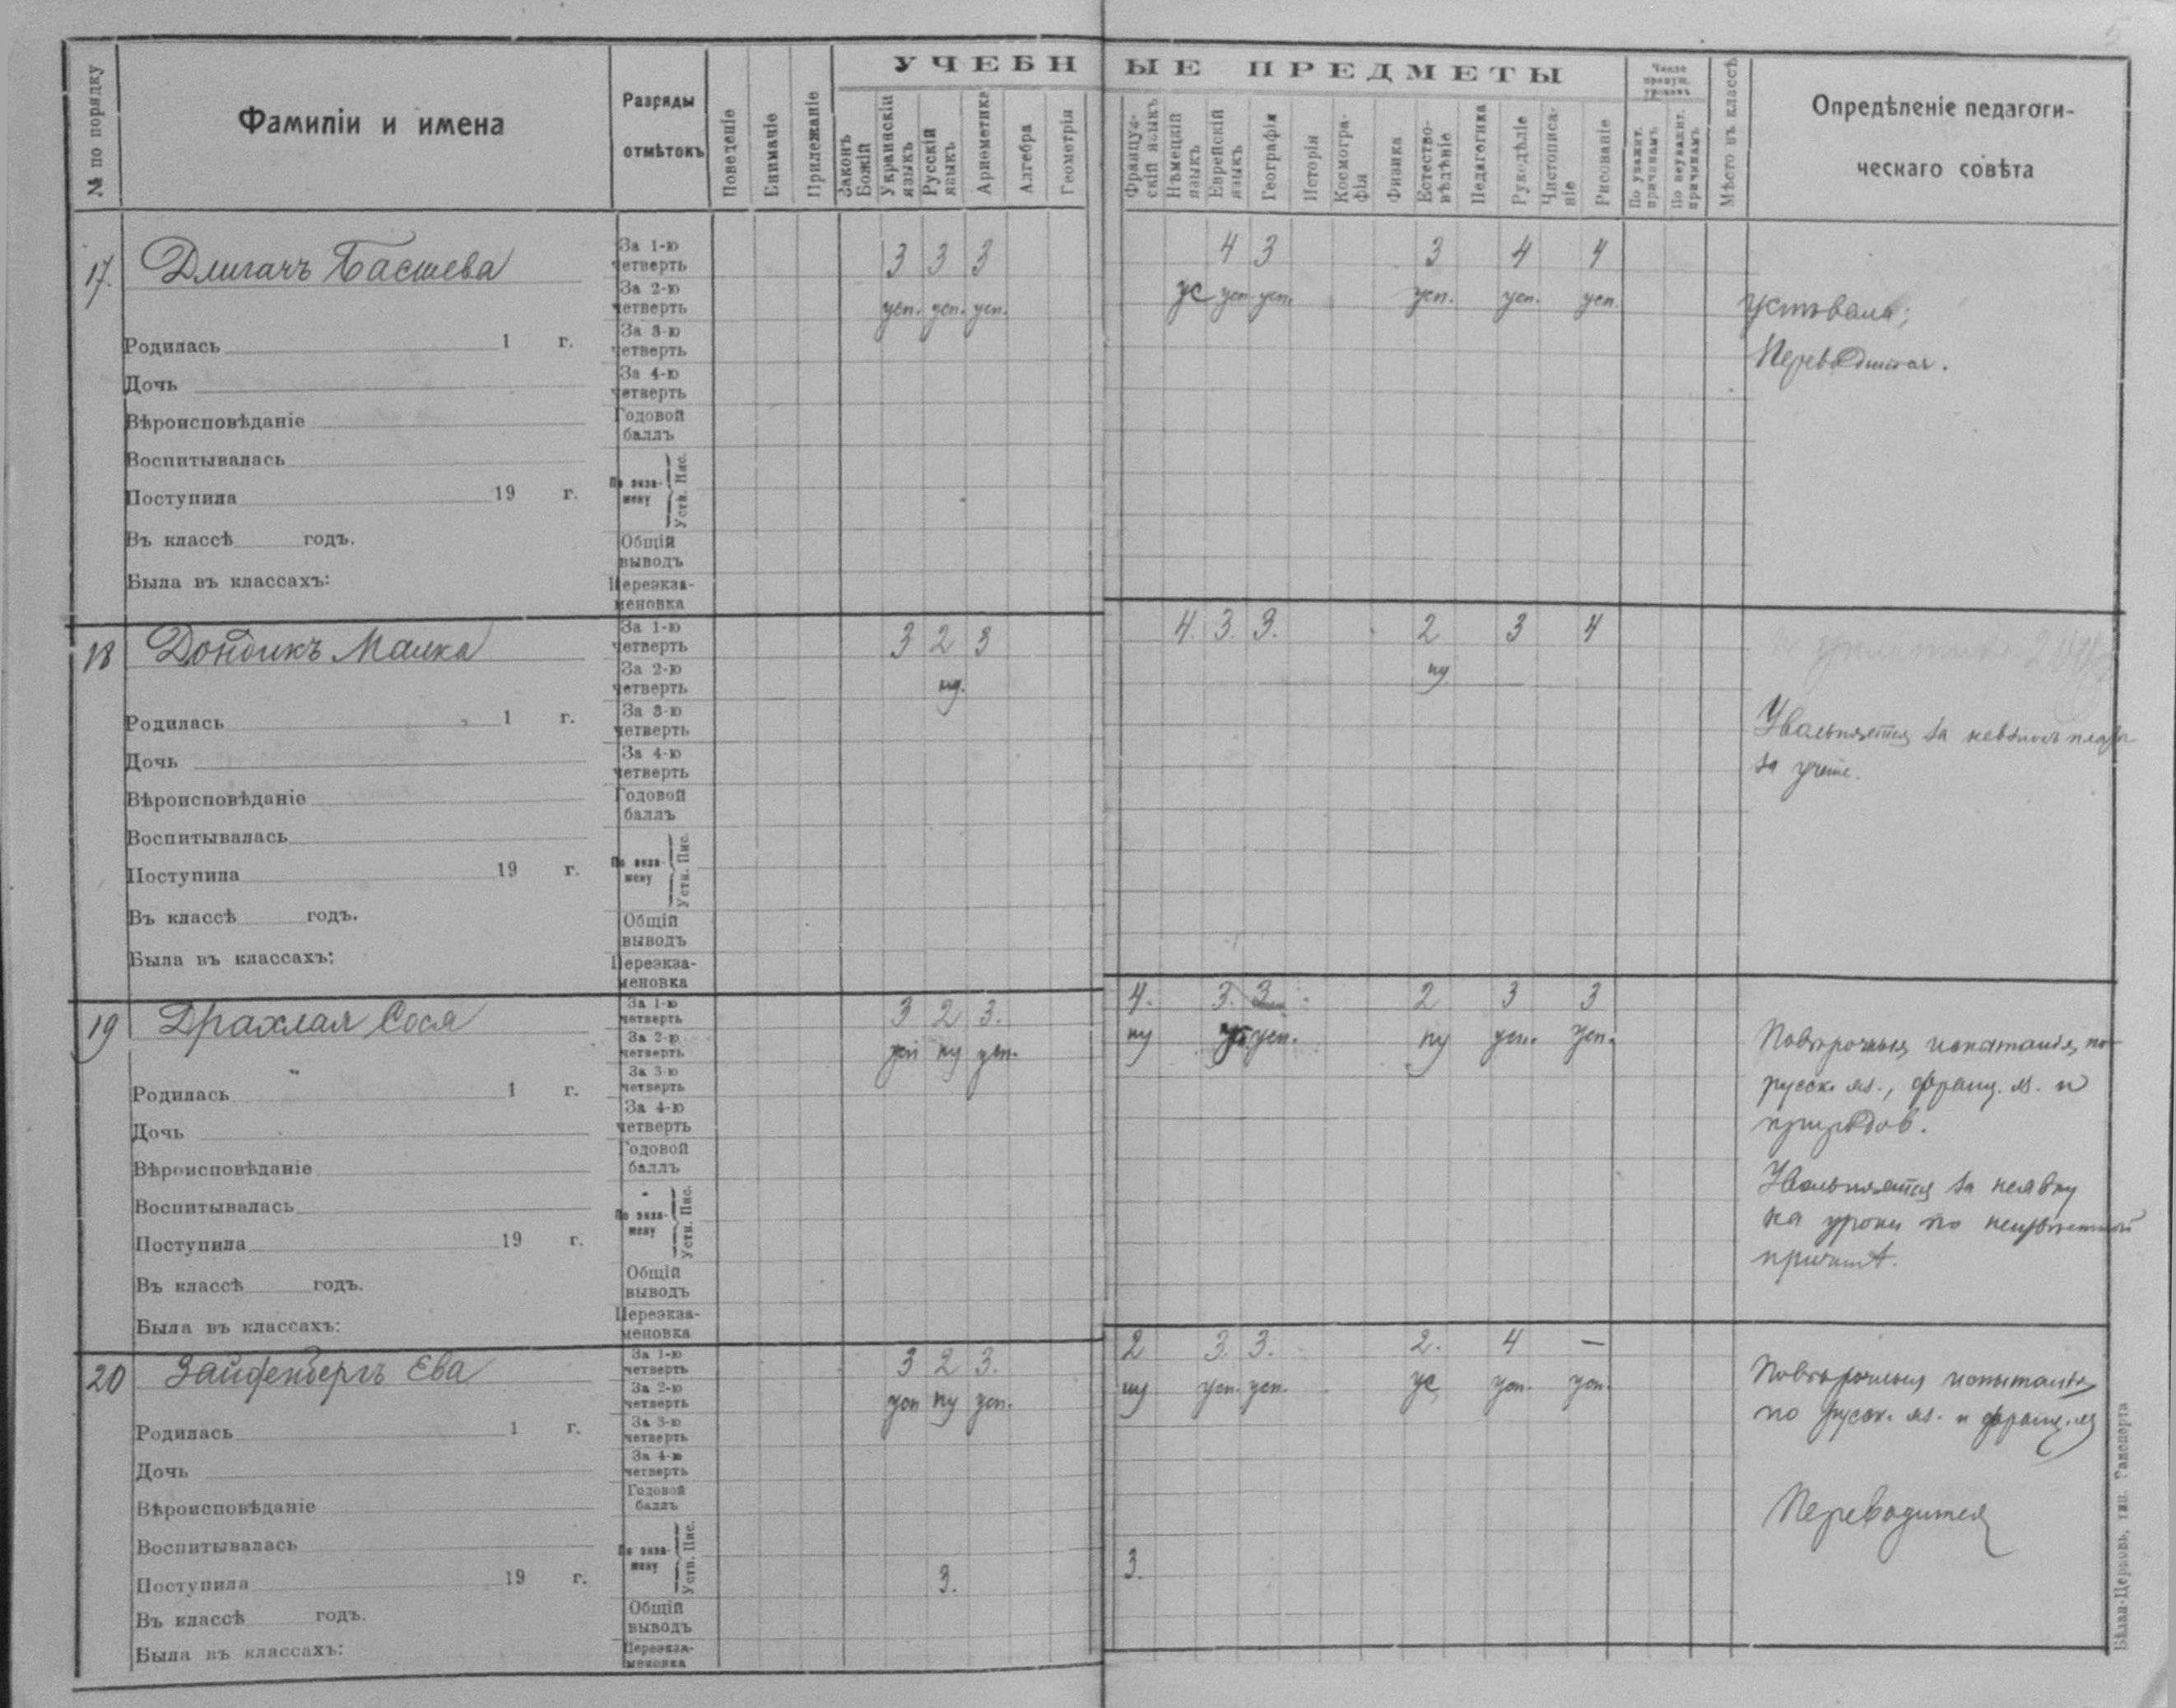 УЧЕБНЫЕ ПРЕДМЕТЫ
№ по порядку
Фамиліи и имена
Разряды
отмѣтокъ
Поведеніе
Вниманіе
Прилежаніе
Законъ Божій
Украинскій языкъ
Русскій языкъ
Ариѳметика
Алгебра
Геометрія
Француз-скій языкъ
Нѣмецкій языкъ
Еврейскій языкъ
Географія
Исторія
Космогра-фія
Физика
Естество-вѣдѣніе
Педагогика
Рукодѣліе
Чистописа-ніе
Рисованіе
Число пропущ. уроковъ
По уважит. причинамъ
По неуважит. причинамъ
Мѣсто въ классѣ
Опредѣленіе педагоги-
ческаго совѣта
17. Длигачъ Басшева
За 1-ю четверть 3 3 3 4 3 3 4 4
За 2-ю четверть усп. усп. усп. ус усп усп. усп. усп. усп.
За 3-ю четверть
За 4-ю четверть
Годовой баллъ
По экза-мену Устн. Пис.
Общій выводъ
Переэкза-меновка
Родилась 1 г.
Дочь
Вѣроисповѣданіе
Воспитывалась
Поступила 19 г.
Въ классѣ годъ.
Была въ классахъ:
Переводится.
18 Дондикъ Малка
За 1-ю четверть 3 2 3 4. 3. 3. 2 3 4
За 2-ю четверть ну. ну
За 3-ю четверть
За 4-ю четверть
Годовой баллъ
По экза-мену Устн. Пис.
Общій выводъ
Переэкза-меновка
Родилась 1 г.
Дочь
Вѣроисповѣданіе
Воспитывалась
Поступила 19 г.
Въ классѣ годъ.
Была въ классахъ:
Увольняется за невзносъ платы
за ученіе.
19 Драхлая Сося
За 1-ю четверть 3 2 3. 4. 3. 3 2 3 3
За 2-ю четверть усп ну усп. ну усп. ну усп. усп.
За 3-ю четверть
За 4-ю четверть
Годовой баллъ
По экза-мену Устн. Пис.
Общій выводъ
Переэкза-меновка
Родилась 1 г.
Дочь
Вѣроисповѣданіе
Воспитывалась
Поступила 19 г.
Въ классѣ годъ.
Была въ классахъ:
Повѣрочныя испытанія по
русск. яз., франц. яз. и
природов.
Увольняется за неявку
на уроки по неизвѣстной
причинѣ.
20 Зайфенбергъ Ева
За 1-ю четверть 3 2 3. 2 3. 3. 2. 4 —
За 2-ю четверть усп ну усп. ну усп. усп. ус усп. усп.
За 3-ю четверть
За 4-ю четверть
Годовой баллъ
По экза-мену Устн. Пис. 3. 3.
Общій выводъ
Переэкза-меновка
Родилась 1 г.
Дочь
Вѣроисповѣданіе
Воспитывалась
Поступила 19 г.
Въ классѣ годъ.
Была въ классахъ:
Повѣрочныя испытанія
по русск. яз. и франц. яз
Переводится
Бѣлая-Церковь, тип.